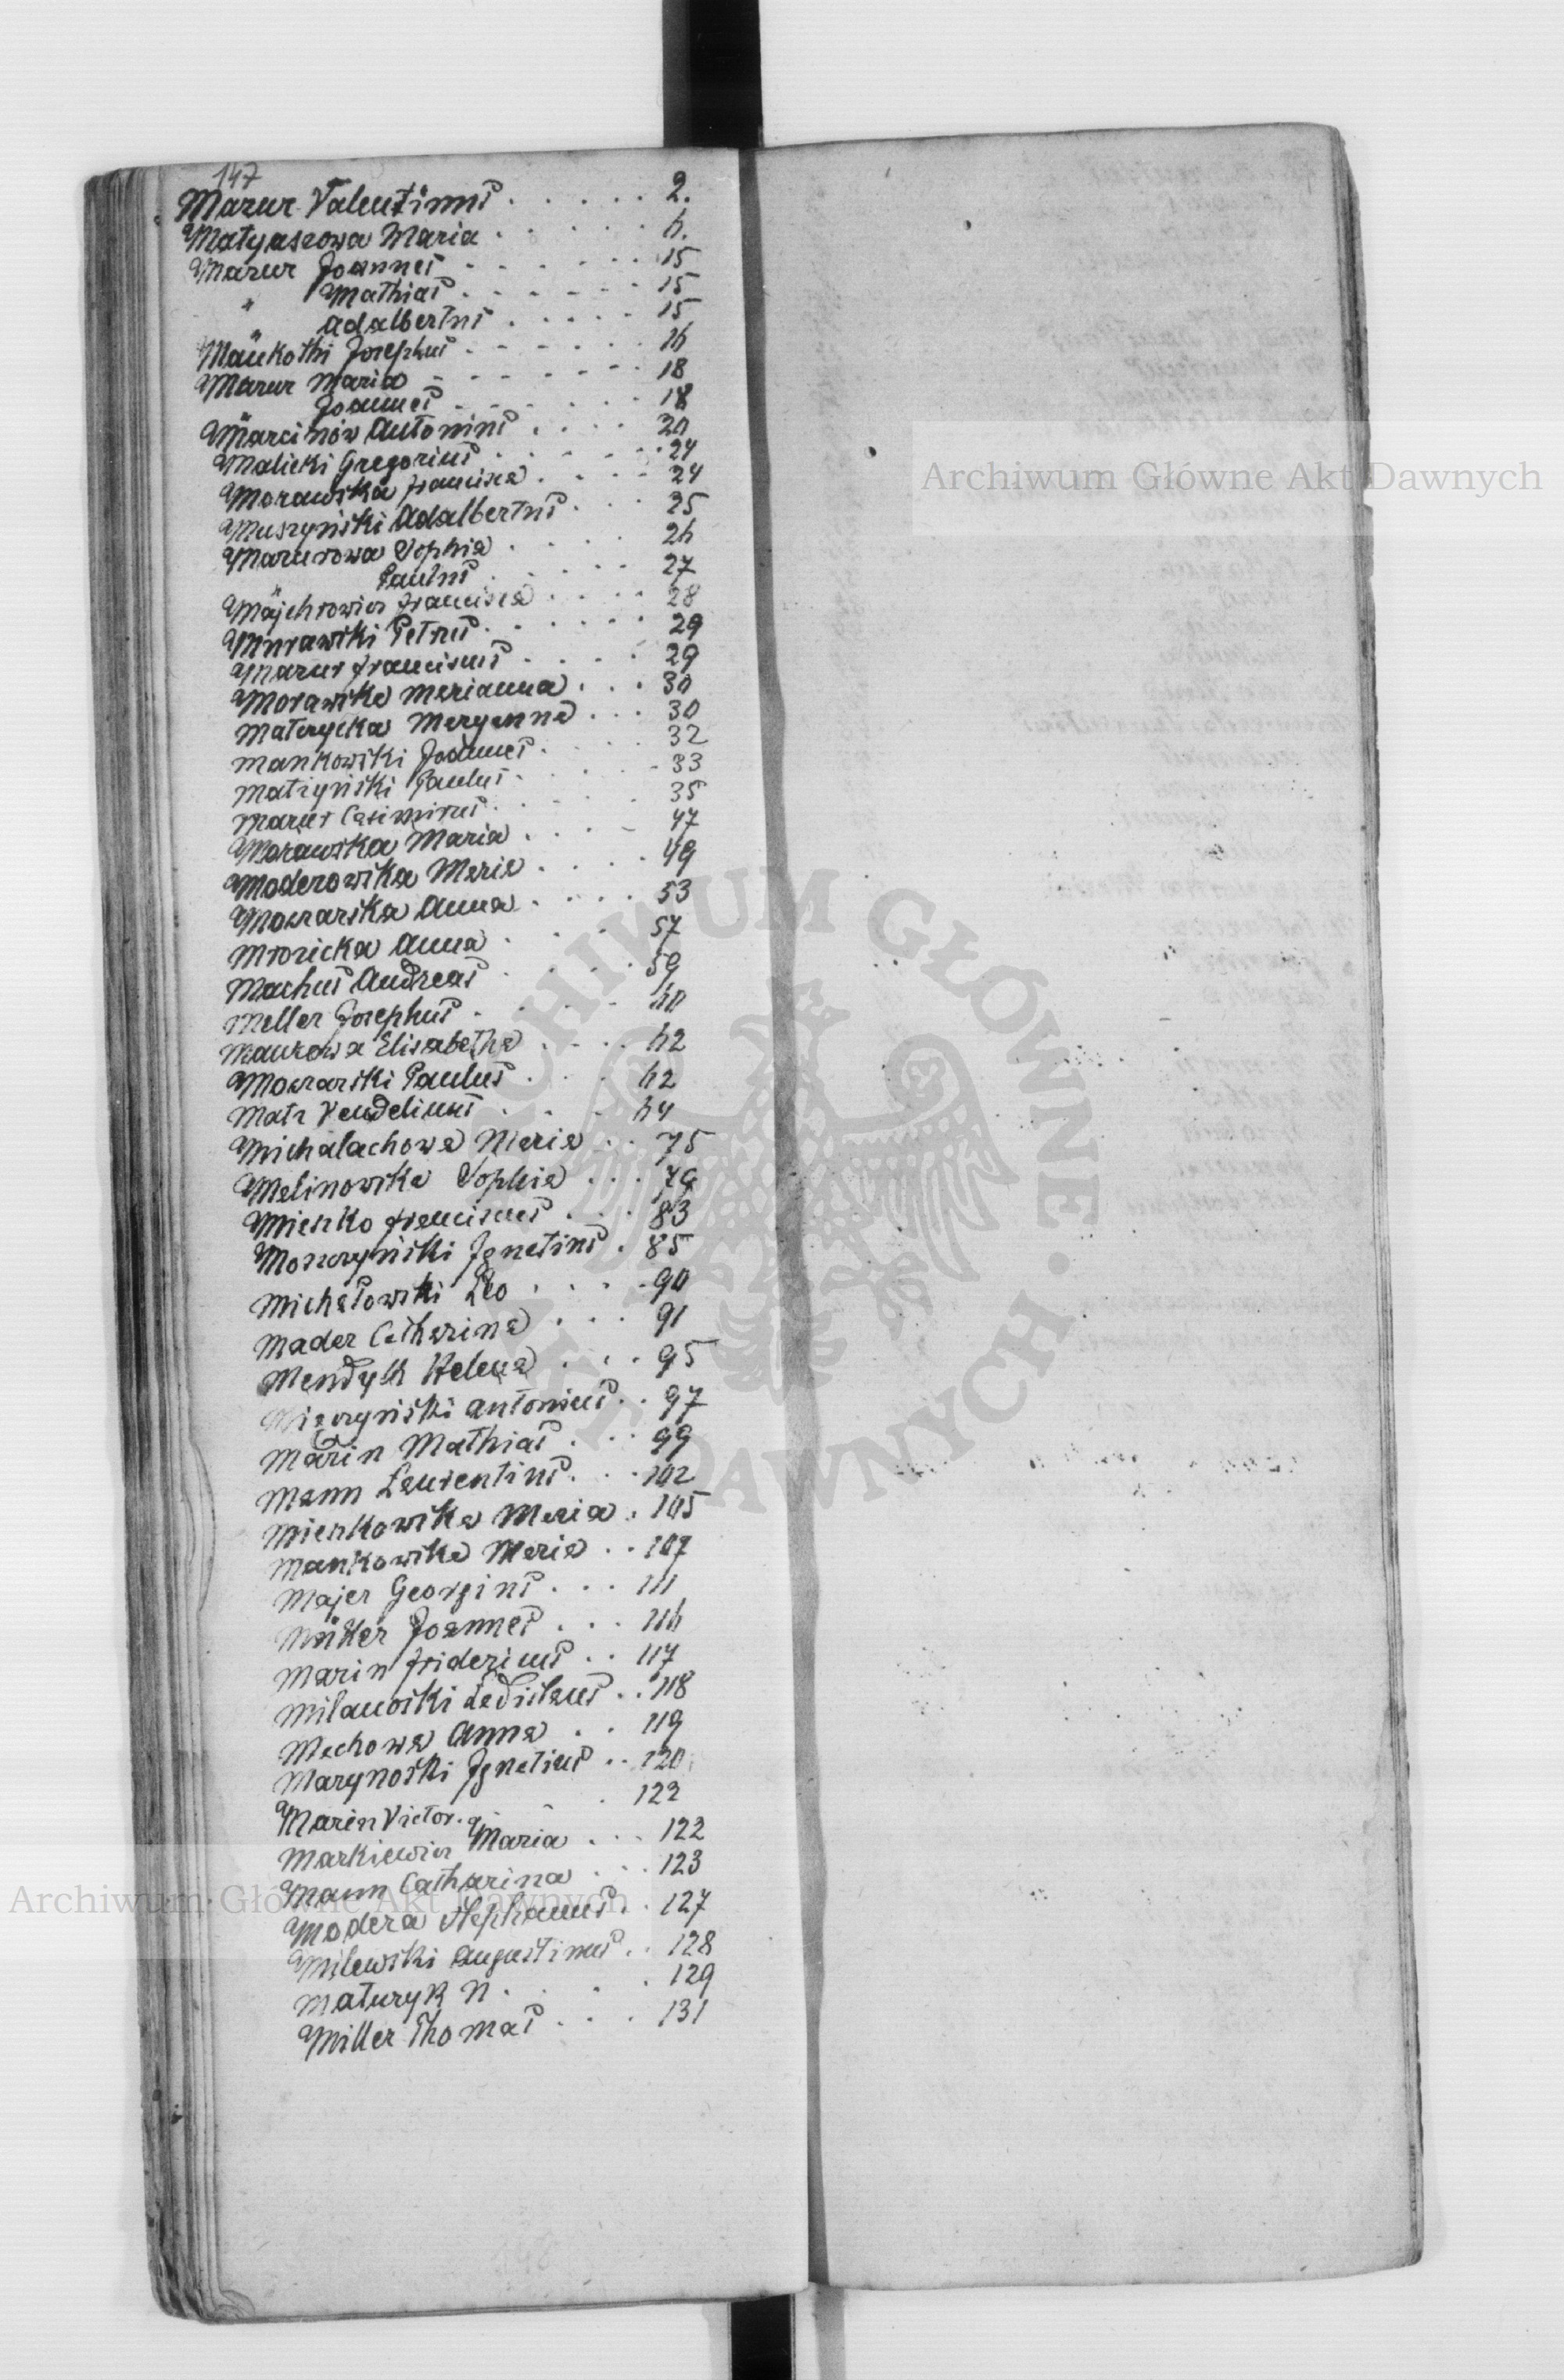 147
Mazur Valentinus . . . . . 2.
Matyaszowa Maria . . . . . 6.
Mazur Joannes . . . . . . 15
" Mathias . . . . . . 15
" Adalbertus . . . . . 15
Josephus . . . . . . 16
Mazur Maria . . . . . . 18
" Joannes . . . . . . 18
Marcinów Antonius . . . . 20
Malicki Gregorius . . . . . 24
Morawska Francisca . . . . 24
Muszyński Adalbertus . . . 25
Mazurowa Sophia . . . . 26
" Paulus . . . . . 27
Majchrowicz Francisca . . . . 28
Murawski Petrus . . . . . . 29
Mazur Franciscus . . . . 29
Morawska Marianna . . . 30
Maryanna . . . 30
Mankowski Joannes . . . . 32
Matzyński Paulus . . . . . 33
Mazur Casimirus . . . . . 35
Morawska Maria . . . . 47
Moderowska Maria . . . . . 49
Moszarska Anna . . . . 53
Mrozicka Anna . . . . 57
Machus Andreas . . . . . 59
Meller Josephus . . . . . 60
Elisabetha . . . . 62
Moszarski Paulus . . . . 62
Matz Vendelinus . . . . 64
Michalachowa Maria . . 75
Malinowska Sophia . . . 79
Mieszko Franciscus . . . 83
Moszczyński Ignatius . 85
Michałowski Leo . . . . . 90
Mader Catharina . . . 91
Mendyk Helena . . . . 95
Antonius . . 97
Marin Mathias . . . 99
Mann Laurentius . . . 102
Mierkowska Maria . 105
Mankowska Maria . . 107
Majer Georgius . . . 111
Müller Joannes . . . 116
Marin Fridericus . . 117
Milanoski Ladislaus . . 118
Machowa Anna . . 119
Marynoski Ignatius . . 120
Marin Victor . . . 122
Markiewicz Maria . . . 122
Mann Catharina . . . 123
Modera Stephanus . . 127
Milewski Augustinus . . 128
Maturyk N . . . . 129
Miller Thomas . . . 131
Archiwum Główne Akt Dawnych
ARCHIWUM GŁÓWNE AKT DAWNYCH
Archiwum Główne Akt Dawnych